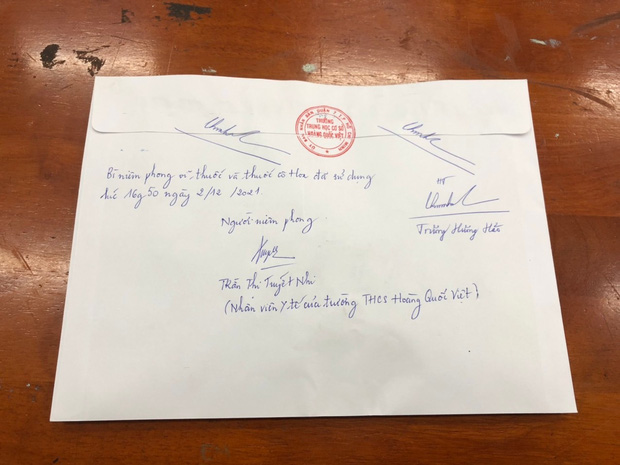 ỦY BAN NHÂN DÂN QUẬN 7 T.P HỒ CHÍ MINH
TRƯỜNG
TRUNG HỌC CƠ SỞ
HOÀNG QUỐC VIỆT
Bì niêm phong vỉ thuốc và thuốc cô Hoa đã sử dụng
lúc 16g50 ngày 2/12/2021.
Người niêm phong
Trần Thị Tuyết Nhi
(Nhân viên Y tế của trường THCS Hoàng Quốc Việt)
HT
Trương Hương Hân